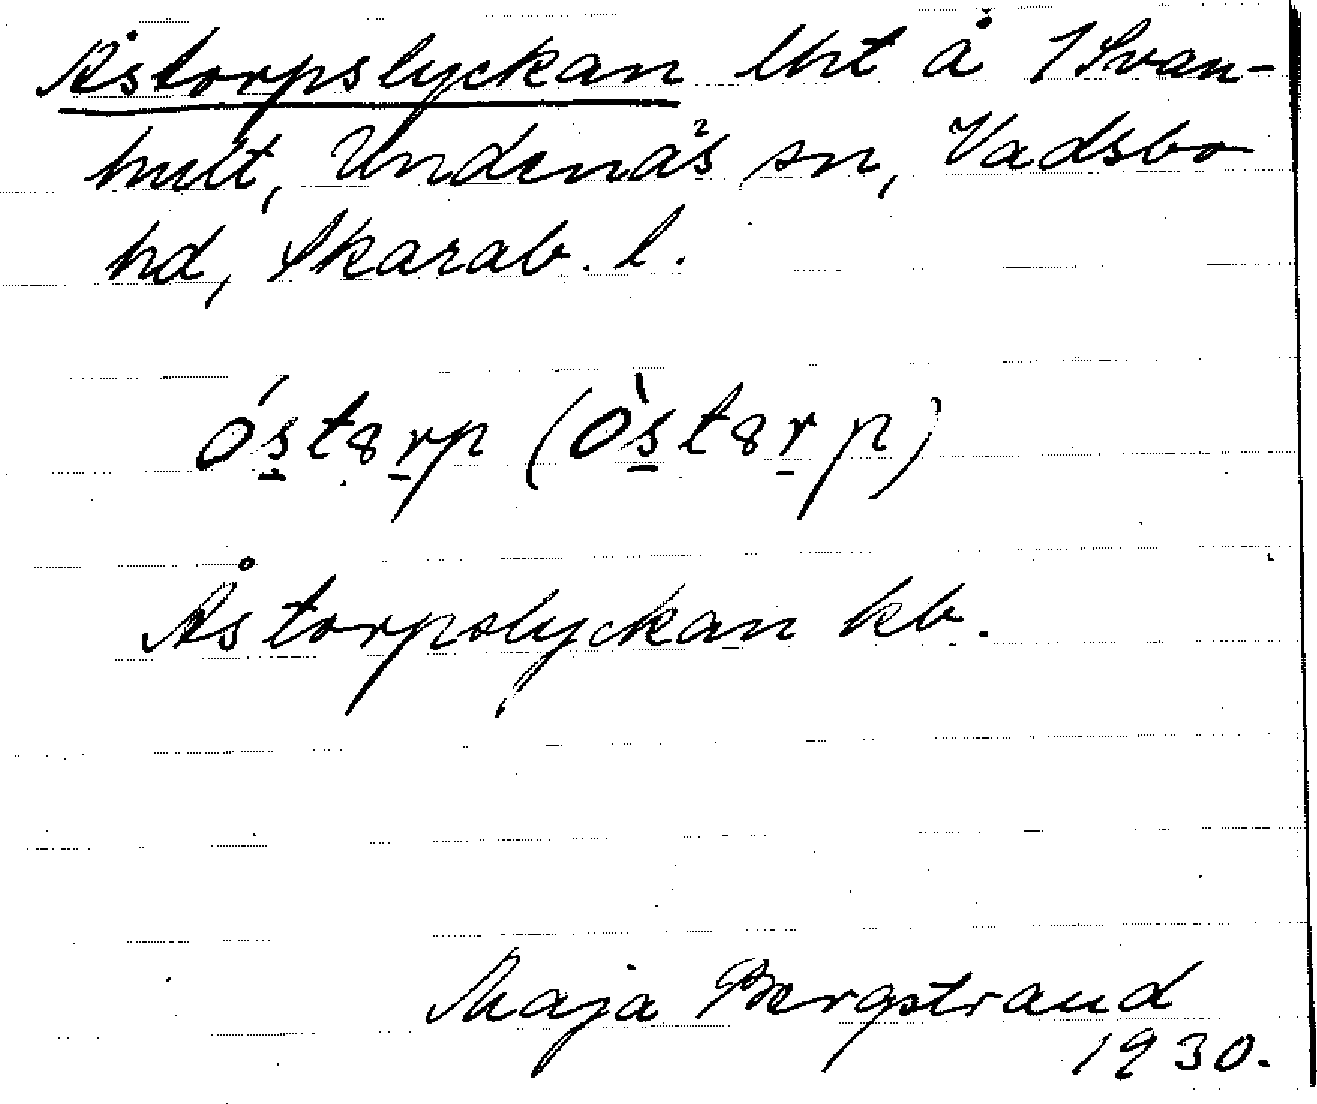 Åstorpslyckan lht å 1 Svan-
hult, Undenäs sn, Vadsbo
hd, Skarab. l.
óstərp (òstərp)
Åstorpslyckan kb.
Maja Bergstrand
1930.